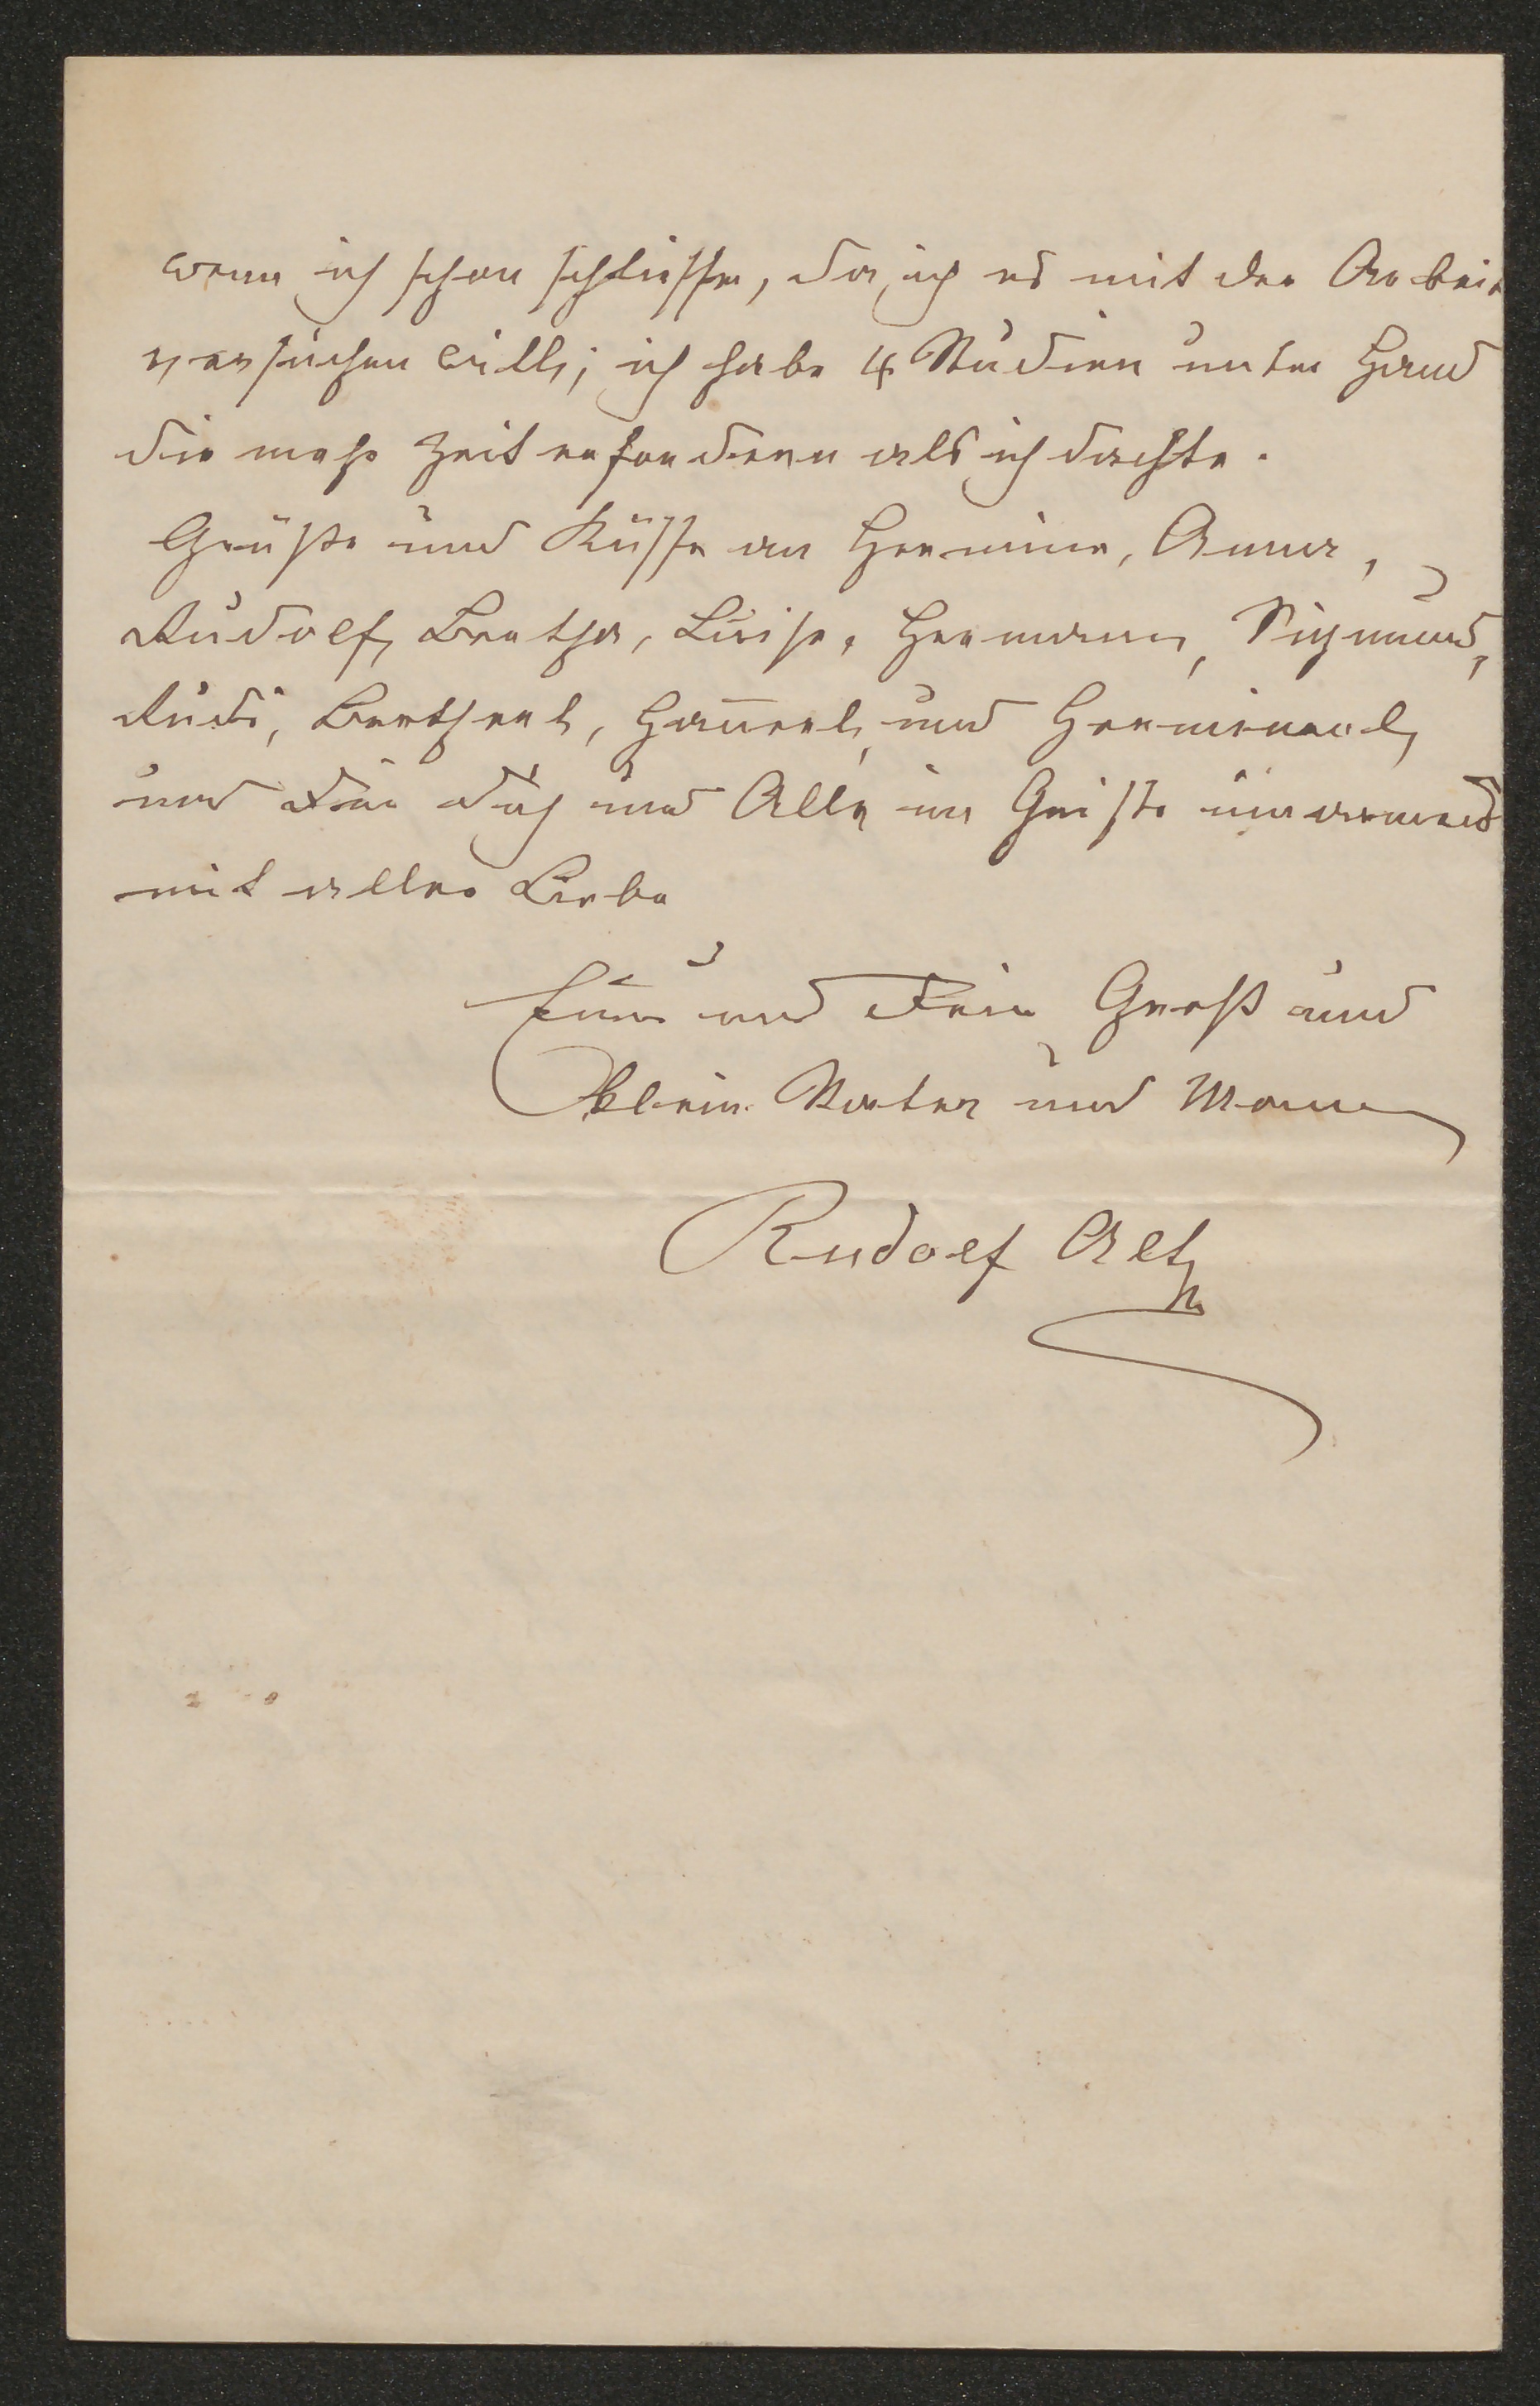 wenn ich schon schließe, da ich es mit der Arbeit
versuchen will; ich habe 4 Studien unter Hand
die mehr Zeit erfordern als ich dachte.
Grüße und Küsse an Hermine, Anna,
Rudolf, Bertha, Luise, Hermann, Sigmund,
Rudi, Bertherl, Hannerl, und Herminerl,
und Dir dich und Alle im Geiste umarmend
mit aller Liebe
Euer und Dein Groß und
Klein Vater und Mann
Rudolf Alt